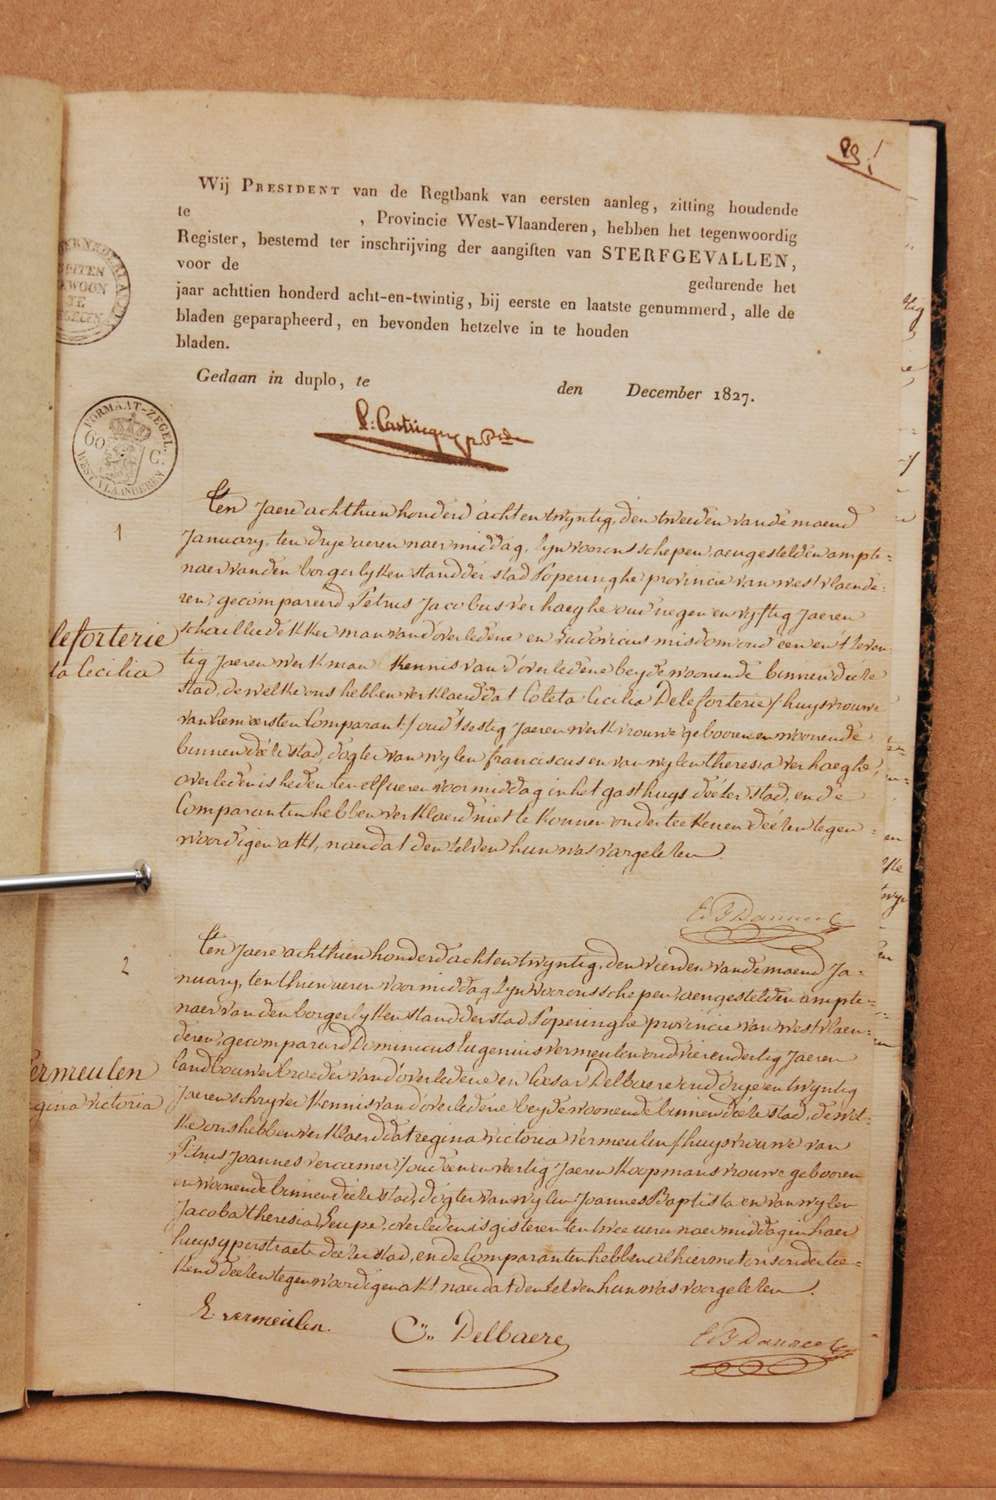 Wij PRESIDENT van de Regtbank van eersten aanleg, zitting houdende
te , Provincie West-Vlaanderen, hebben het tegenwoordig
Register, bestemd ter inschrijving der aangiften van STERFGEVALLEN,
voor de gedurende het
jaar achttien honderd acht-en-twintig, bij eerste en laatste genummerd, alle de
bladen geparapheerd, en bevonden hetzelve in te houden
bladen.
Gedaan in duplo, te den December 1827.
FORMAAT-ZEGEL
60 C.
WEST VLAANDEREN
1
leforterie
ta Cecilia
ten Jaere achthien honderd acht en twyntig, den tweeden van de maend
January, ten drye ueren naer middag, syn voor ons schepen, aengestelden ampte-
naer van den borgerlyken stand der stad Poperinghe provincie van westvlaende-
ren, gecompareerd Petrus Jacobus verhaeghe oud negen en vyftig Jaeren
schailliedekker man van d'overledene en Ludovicus misdom oud een en t'seven-
tig Jaeren werkman kennis van d'overledene beyde woonende binnen deése
stad, dewelke ons hebben verklaerd dat Coleta Cecilia Deleforterie / huysvrouwe
van hem eersten Comparant / oud t'sestig Jaeren werkvrouwe gebooren en woonende
binnen deése stad, dogter van wylen franciscus en van wylen theresia verhaeghe,
overleden is heden ten elf ueren voormiddag in het gasthuys deéser stad, en d'e
Comparanten hebben verklaerd niet te konnen onderteekenen deésen tegen-
woordigen akt, naer dat den selven hun was vorgelesen.
2
ermeulen
gina victoria
ten Jaere achthien honderd acht en twyntig, den vierden van de maend Ja-
nuary, ten thien ueren voormiddag, syn voor ons schepen aengestelden ampte-
naer van den borgerlyken stand der stad Poperinghe provincie van westvlaen-
deren, gecompareerd Dominicus Eugenius vermeulen oud vierendertig Jaeren
landbouwer broeder van d'overledene en Cesar Delbaere oud drye en twyntig
Jaeren schryver kennis van d'overledene beyde woonende binnen deése stad, dewel-
ke ons hebben verklaerd dat regina victoria vermeulen / huysvrouwe van
Petrus Joannes vercamer / oud een en veertig Jaeren koopmans vrouwe gebooren
en woonende binnen deése stad, dogter van wylen Joannes Baptista en van wylen
Jacoba theresia Leupe, overleden is gisteren ten twee ueren naer middag in haer
huys yperstraete deéser stad, en de Comparanten hebben alhier met ons ondertee-
kend deésen tegenwoordigen akt naer dat den selven hun was voorgelesen.
E vermeulen. C. Delbaere